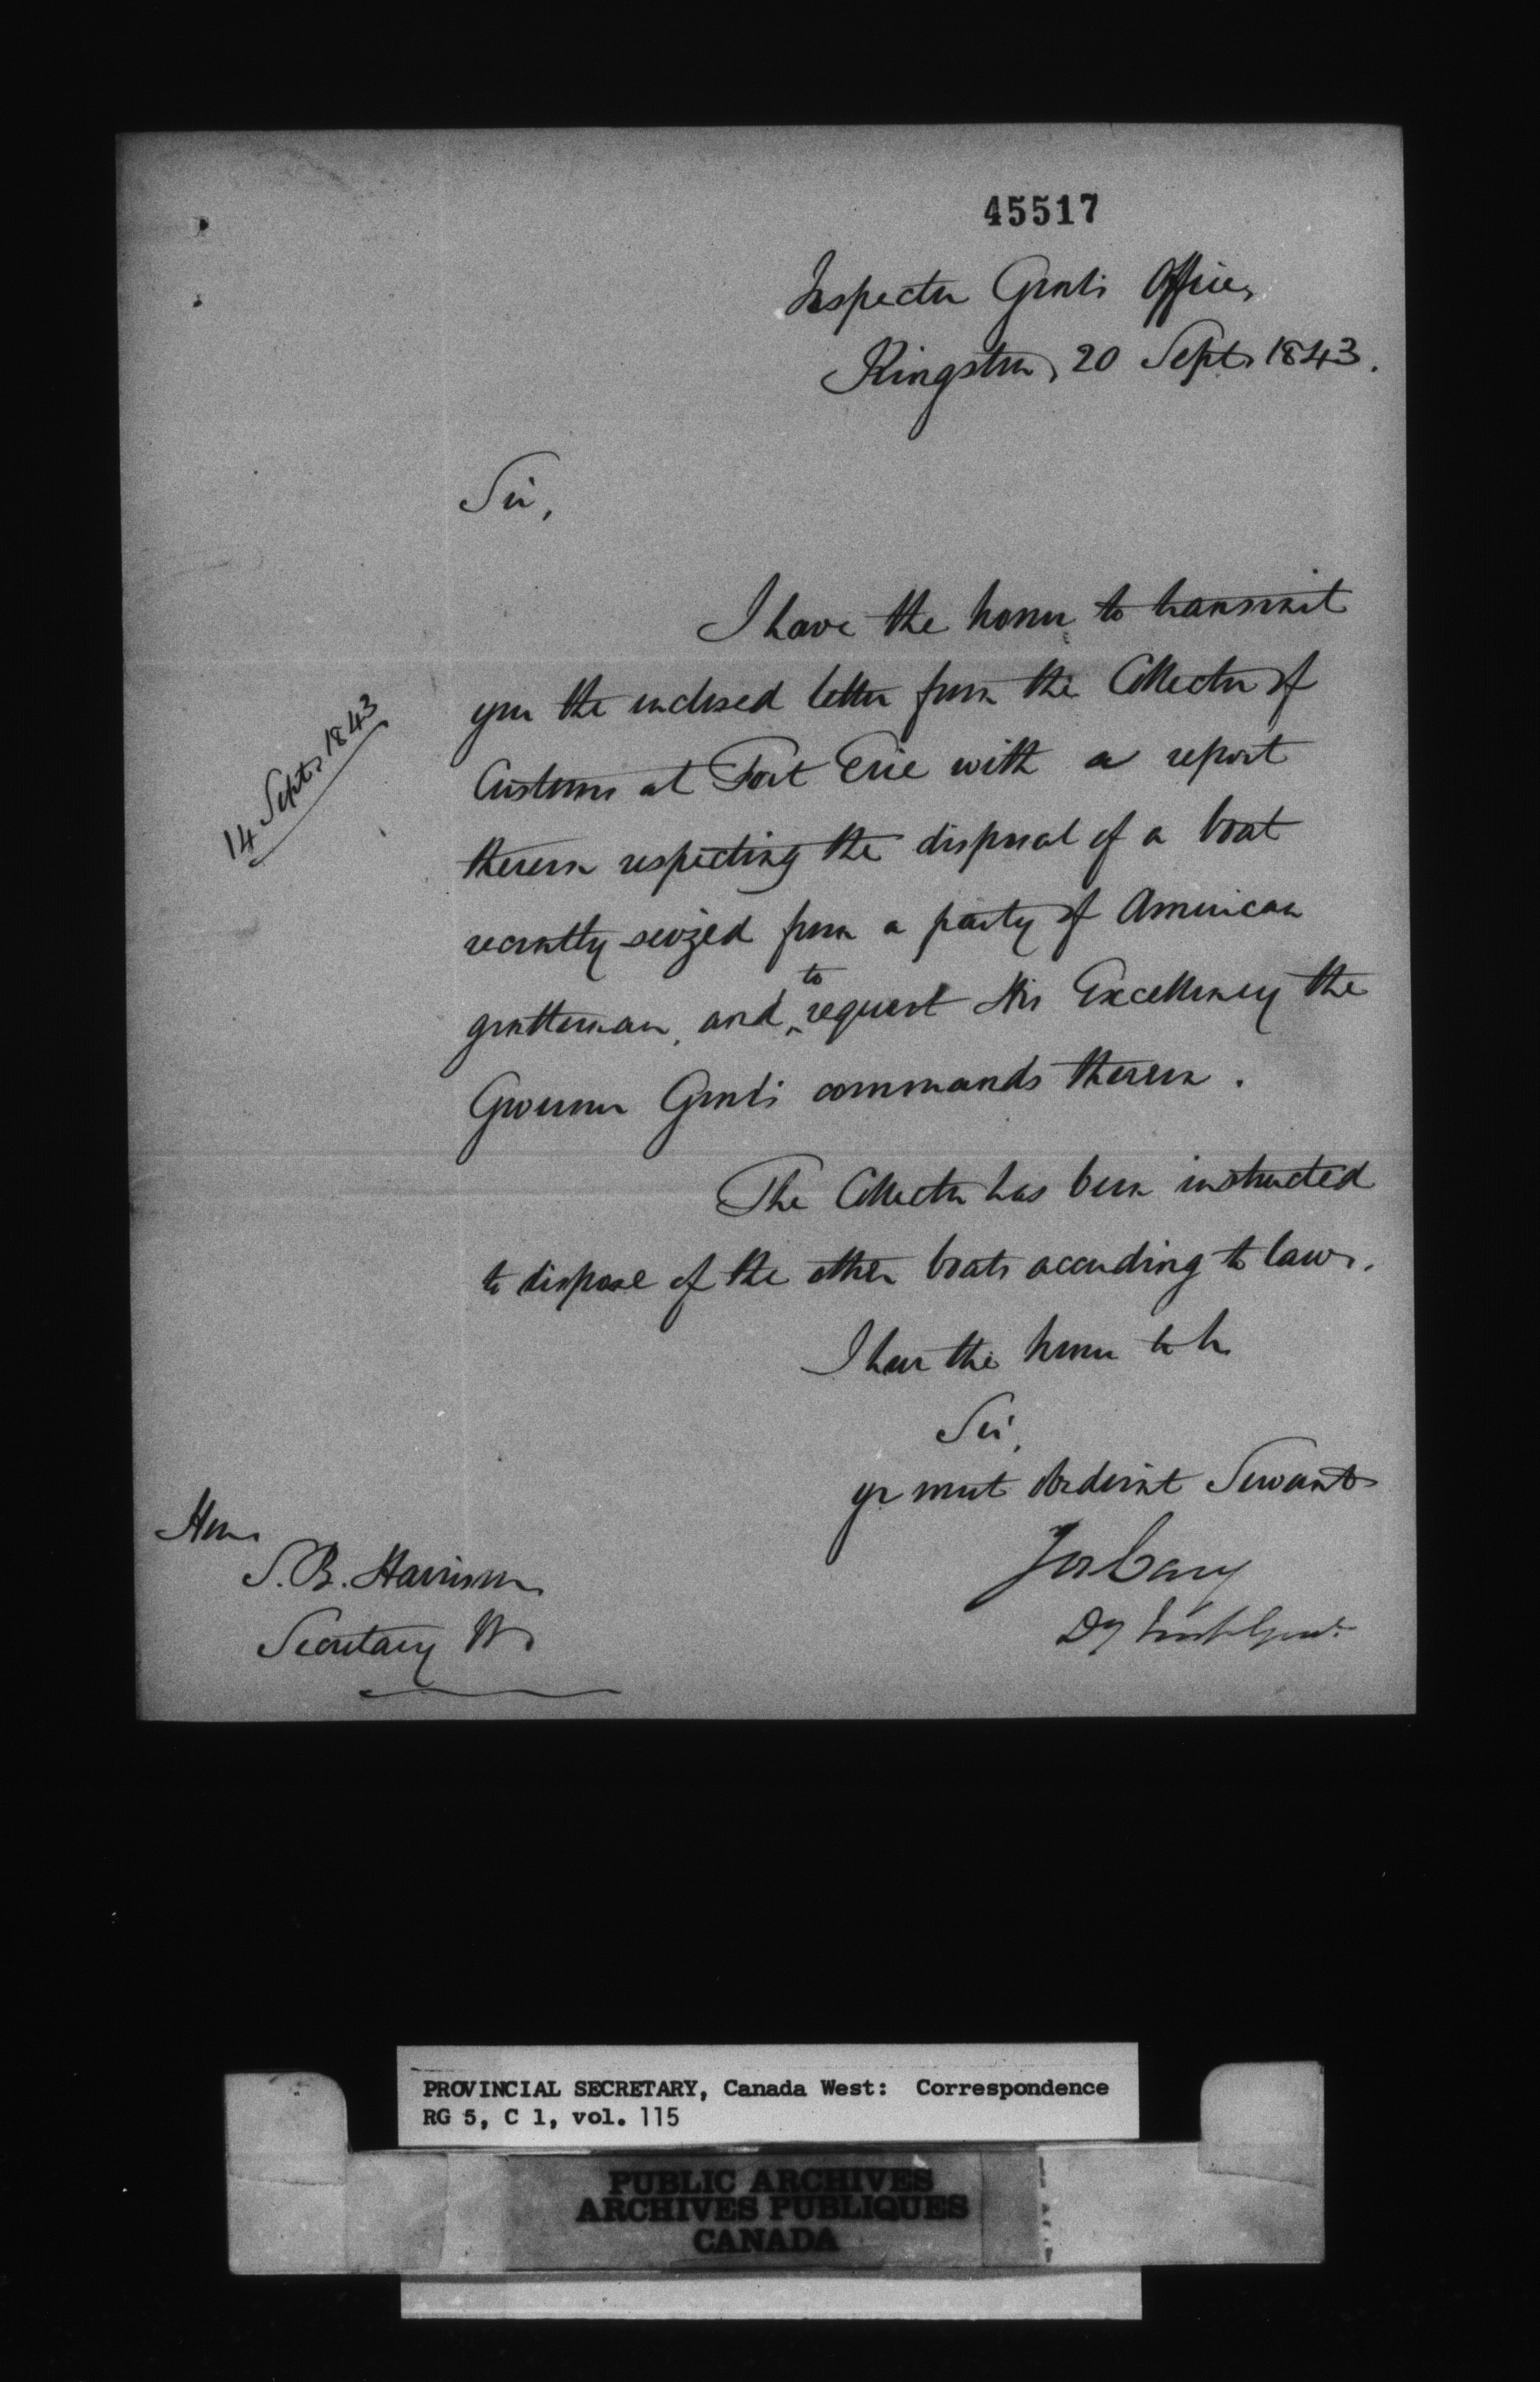 45517
Inspector Genl's Office,
Kingston, 20 Sept. 1843.
Sir,
I have the honor to transmit
you the inclosed letter from the Collector of
Customs at Fort Erie with a report
thereon respecting the disposal of a boat
recently seized from a party of American
gentleman, and to request His Excellency the
Governor Genl's commands thereon.
14 Sept. 1843
The Collector has been instructed
to dispose of the other boats according to law.
I have the honor to be
Sir,
yr most obedient Servant
Jos Cary
Dy Insp Genl.
Hon.
S. B. Harrison
Secretary W.
PROVINCIAL SECRETARY, Canada West: Correspondence
RG 5, C 1, vol. 115
PUBLIC ARCHIVES
ARCHIVES PUBLIQUES
CANADA